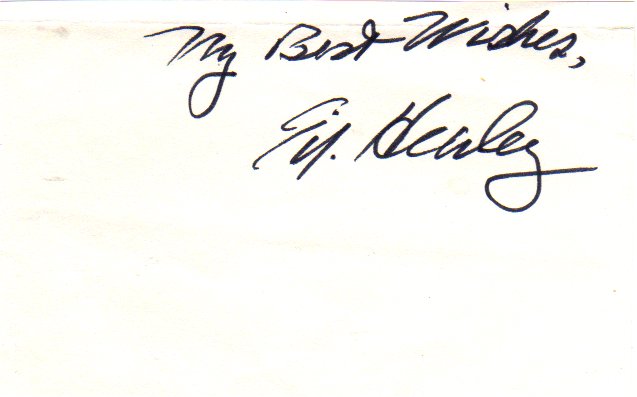 My Best Wishes,
Henley